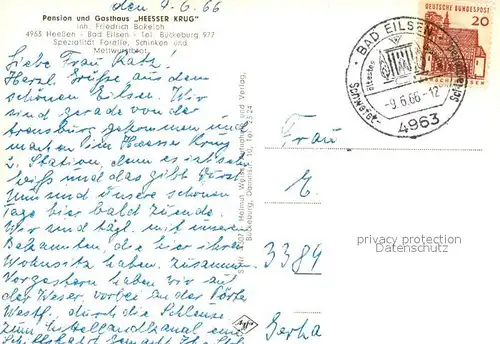 den 9.6.66
Pension und Gasthaus „HEESSER KRUG"
Inh. Friedrich Bokeloh
4963 Heeßen - Bad Eilsen - Tel. Bückeburg 977
Spezialität Forelle, Schinken und
Mettwurstbrot
Liebe Frau Katz!
Herzl. Grüße aus dem
schönen Eilsen. Wir
sind gerade von der
Arensburg gekommen und
machen im Heesser Krug
2. Station, denn es ist sehr
heiß und das gibt Durst.
Nun sind unsere schönen
Tage hier bald zu ende.
Wir sind tägl. mit unseren
Bekannten die hier ihren
Wohnsitz haben, zusammen.
Vorgestern haben wir auf
der Weser, vorbei an der Porta
Westf., durch die Schleuse
zum Mittellandkanal eine
BAD EILSEN
ältestes
Schwefel-
-9.6.66-12
4963
DEUTSCHE BUNDESPOST
20
Frau
E.
3389
privacy protection
Datenschutz